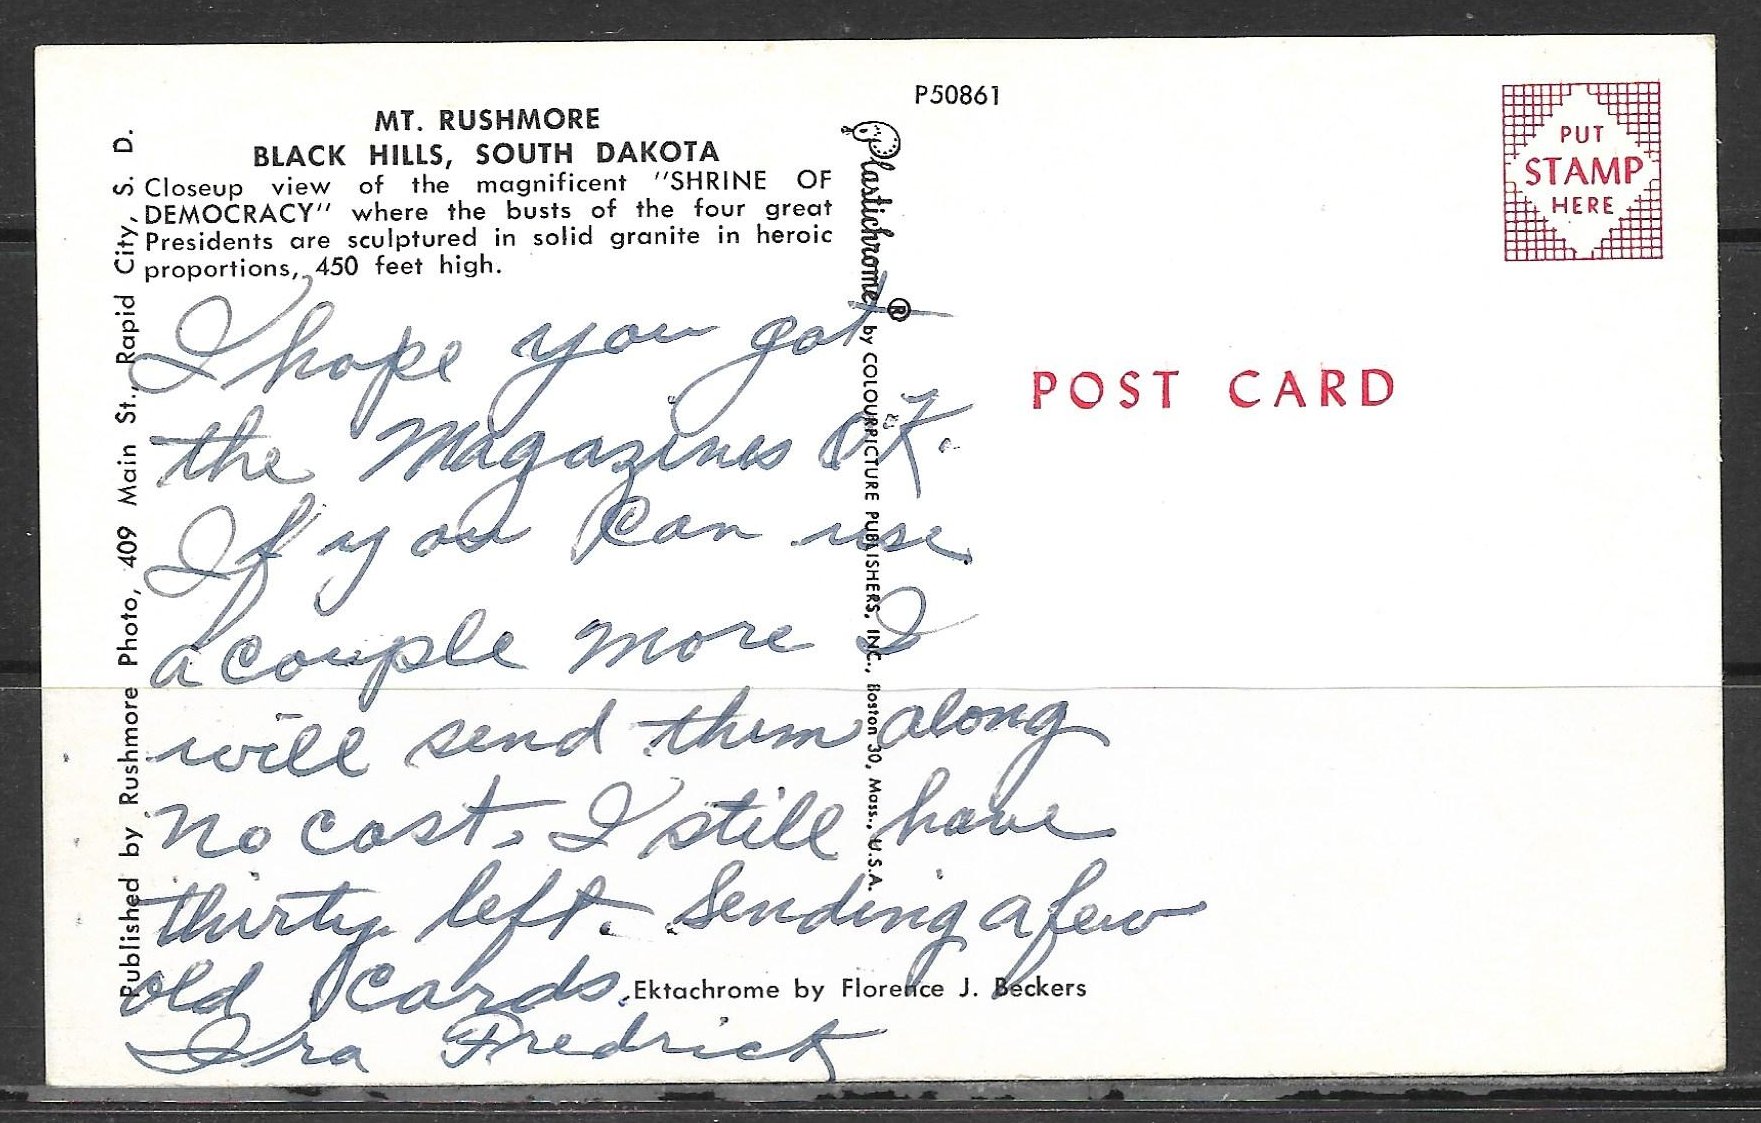 P50861
MT. RUSHMORE
BLACK HILLS, SOUTH DAKOTA
Closeup view of the magnificent "SHRINE OF
DEMOCRACY" where the busts of the four great
Presidents are sculptured in solid granite in heroic
proportions, 450 feet high.
Published by Rushmore Photo, 409 Main St., Rapid City, S. D.
I hope you got
the Magazines OK.
If you can use
a couple more I
will send them along
no cost, I still have
thirty left. Sending a few
old cards.
Ira Fredrick
Plastichrome® by COLOURPICTURE PUBLISHERS, INC., Boston 30, Mass., U.S.A.
Ektachrome by Florence J. Beckers
PUT
STAMP
HERE
POST CARD